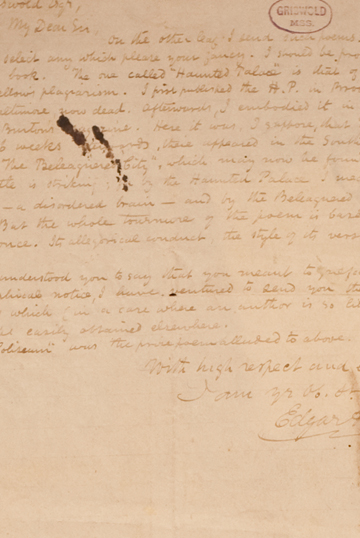 GRISWOLD
MSS.
swold Esqr,
My Dear Sir,
On the other leaf I send such poems
select any which please your fancy. I should be pro
book. The one called "Haunted Palace" is that of
fellow's plagiarism. I first published the H. P. in Broo
altimore now dead. Afterwards, I embodied it in
Burton's Here it was, I suppose, that
6 weeks afterwards, there appeared in the South
"The Beleaguered City", which may now be foun
title is striking; by the Haunted Palace I mea
— a disordered brain — and by the Beleaguered
But the whole tournure of the poem is bas
once. Its allegorical conduct, the style of its vers
understood you to say that you meant to pref
notice, I have ventured to send you th
which (in a case where an author is so li
easily obtained elsewhere.
"Coliseum" was the prize poem alluded to above.
With high respect and
I am yr Ob. St.
Edgar